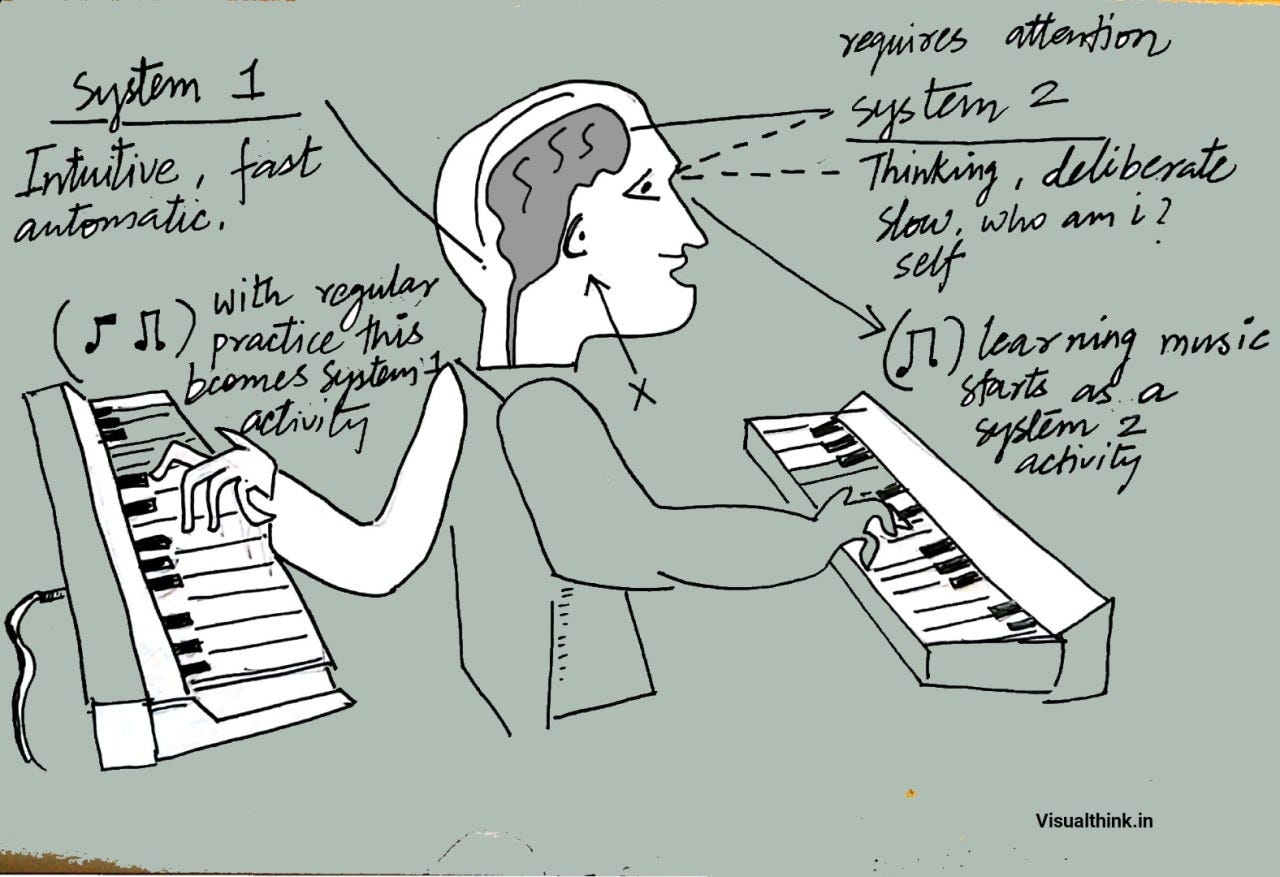 System 1
Intuitive, fast
automatic.
requires attention
system 2
Thinking, deliberate
slow, who am i?
self
with regular
practice this
bcomes system 1
activity
learning music
starts as a
system 2
activity
X
Visualthink.in